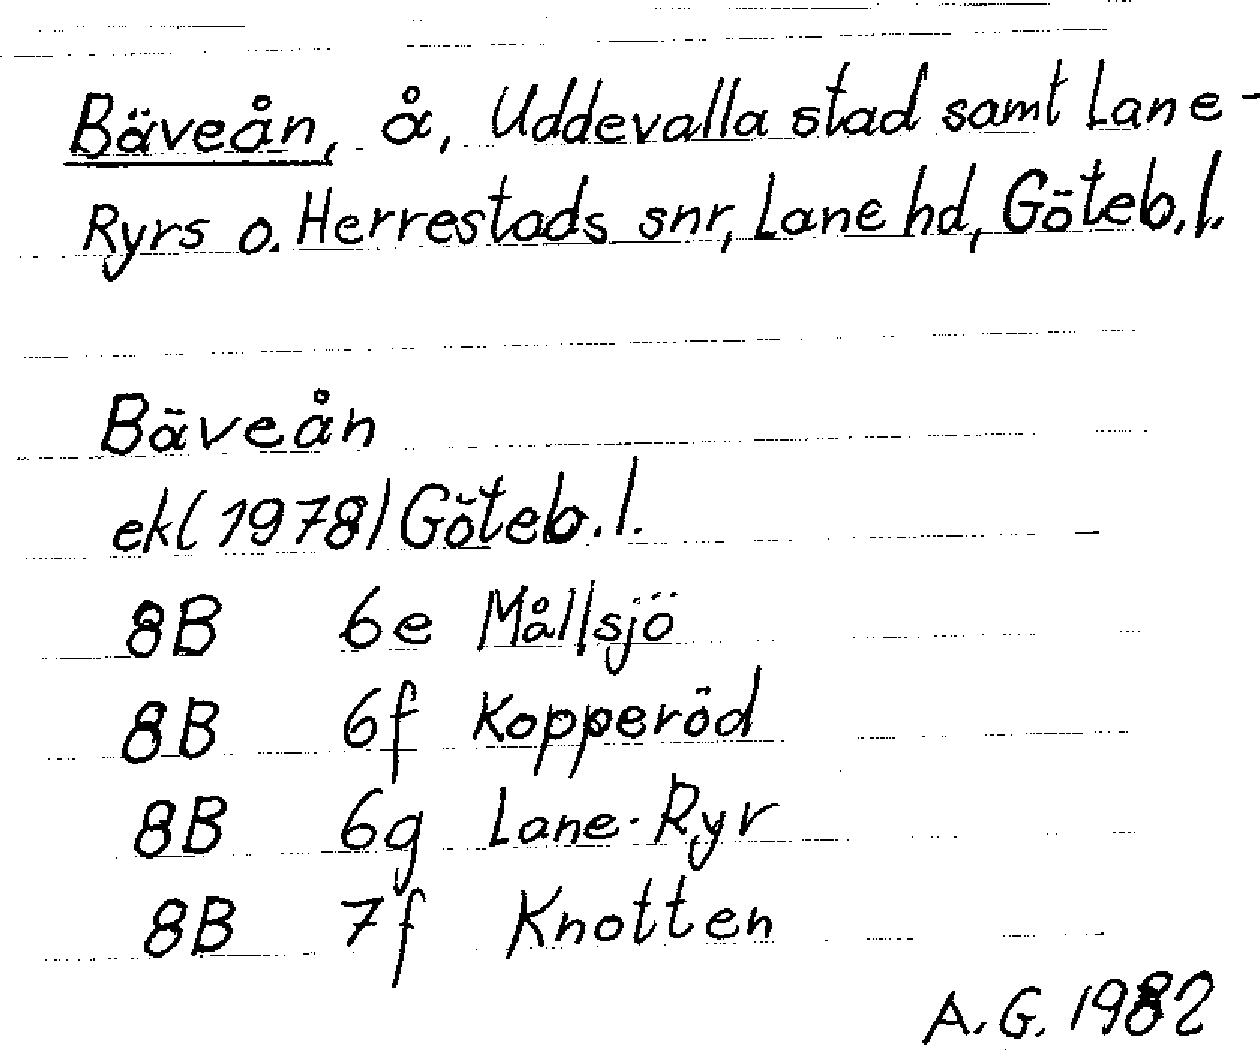 Bäveån, å, Uddevalla stad samt Lane-
Ryrs o. Herrestads snr, Lane hd, Göteb.l.
Bäveån
ek(1978) Göteb.l.
8B 6e Mållsjö
8B 6f Kopperöd
8B 6g Lane-Ryr
8B 7f Knotten
A.G. 1982